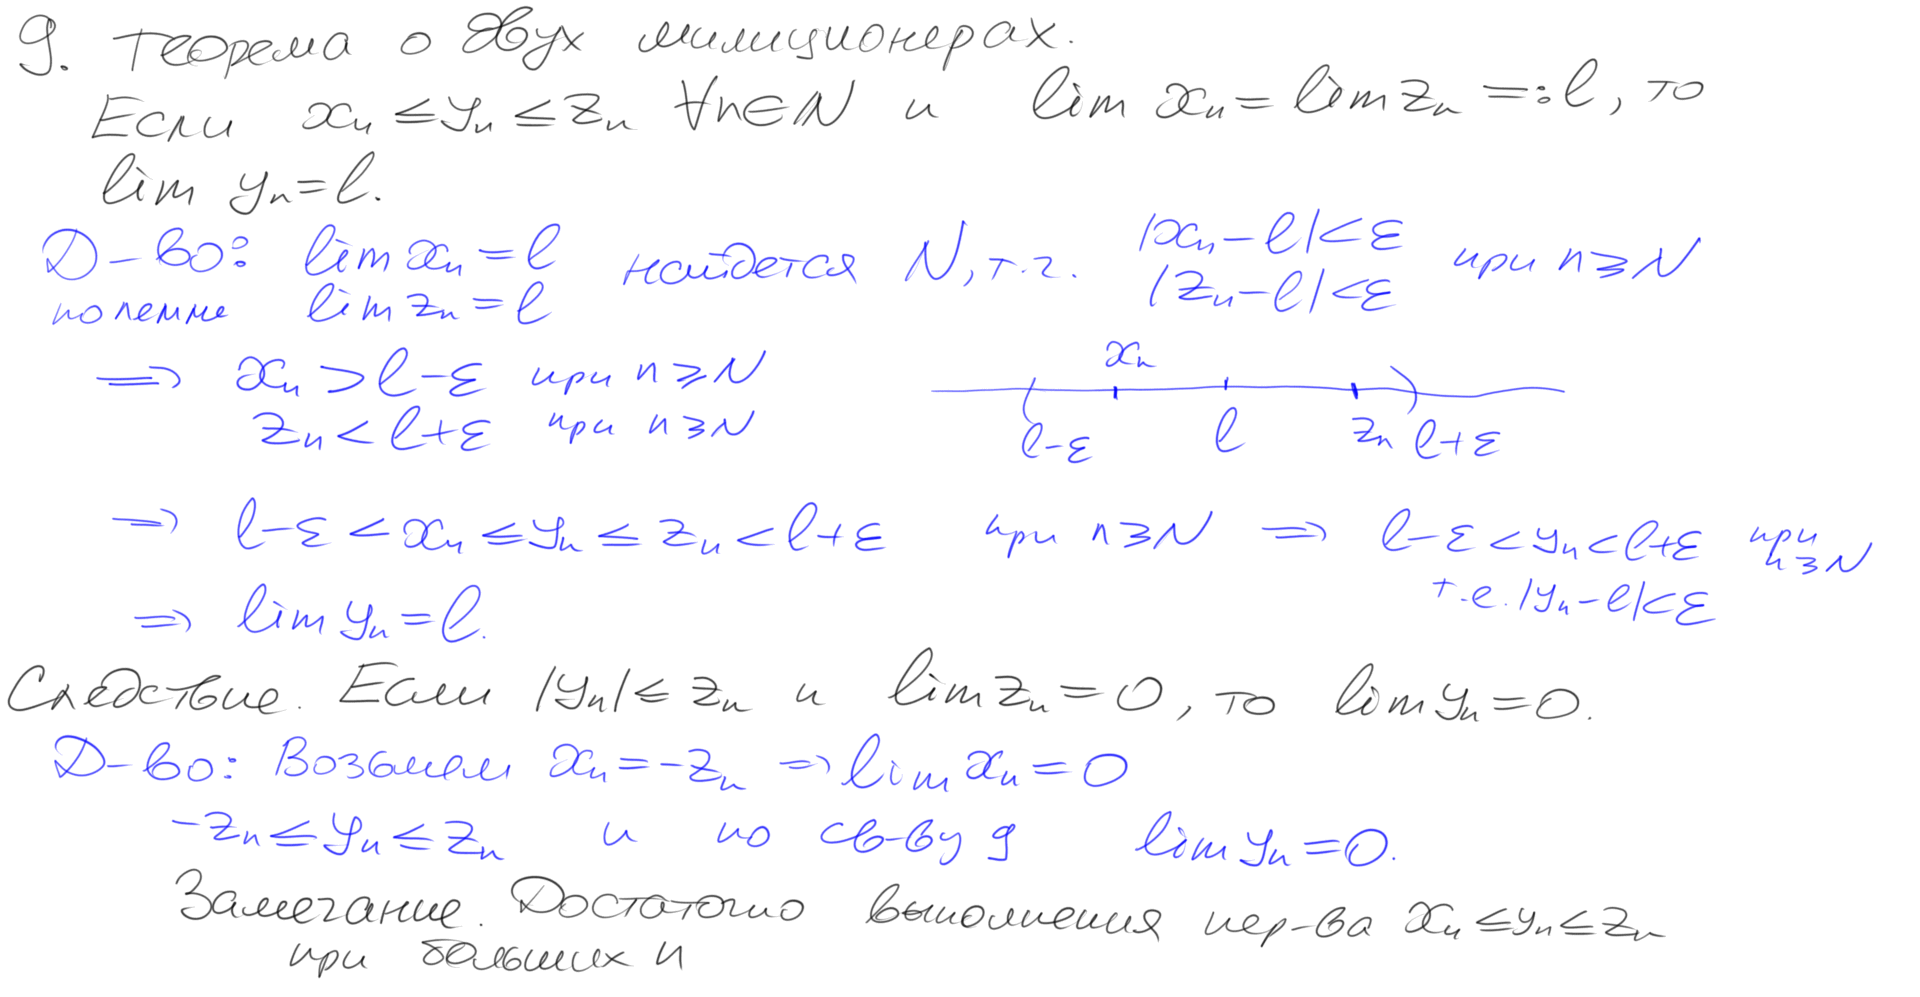 9. Теорема о двух милиционерах.
Если xₙ ≤ yₙ ≤ zₙ ∀n∈N и lim xₙ = lim zₙ =: l, то
lim yₙ = l.
Д-во: lim xₙ = l найдется N, т.ч. |xₙ - l| < ε при n ≥ N
по лемме lim zₙ = l |zₙ - l| < ε
⇒ xₙ > l - ε при n ≥ N
zₙ < l + ε при n ≥ N
xₙ
l-ε l zₙ l+ε
⇒ l - ε < xₙ ≤ yₙ ≤ zₙ < l + ε при n ≥ N ⇒ l - ε < yₙ < l + ε при n ≥ N
т.е. |yₙ - l| < ε
⇒ lim yₙ = l.
Следствие. Если |yₙ| ≤ zₙ и lim zₙ = 0, то lim yₙ = 0.
Д-во: Возьмем xₙ = -zₙ ⇒ lim xₙ = 0
-zₙ ≤ yₙ ≤ zₙ и по св-ву 9 lim yₙ = 0.
Замечание. Достаточно выполнения нер-ва xₙ ≤ yₙ ≤ zₙ
при больших n